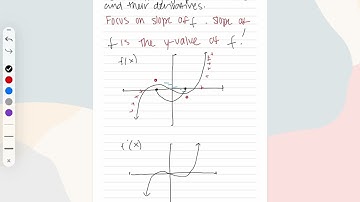 and their derivatives.
Focus on slope of f. slope of
f is the y-value of f'!
f(x)
f'(x)